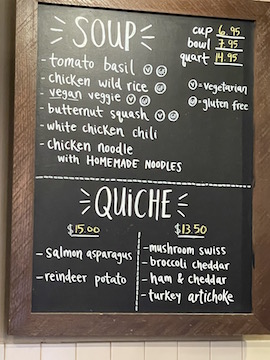 SOUP
cup 6.95
bowl 7.95
quart 14.95
- tomato basil V GF
- chicken wild rice GF
- vegan veggie V GF
- butternut squash V GF
- white chicken chili
- chicken noodle
with HOMEMADE NOODLES
V = vegetarian
GF = gluten free
QUiCHE
$15.00
- salmon asparagus
- reindeer potato
$13.50
- mushroom swiss
- broccoli cheddar
- ham & cheddar
- turkey artichoke